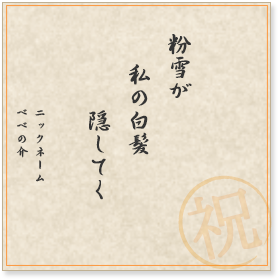 粉雪が
私の白髪
隠してく
ニックネーム
べべの介
祝